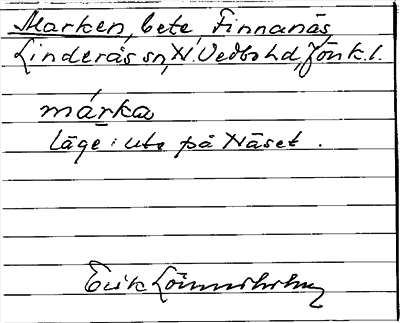 Marken, bete, Finnanäs
Linderås sn, N. Vedbo hd, Jönk. l.
márka
läge: ute på Näset.
Erik Lönnerholm